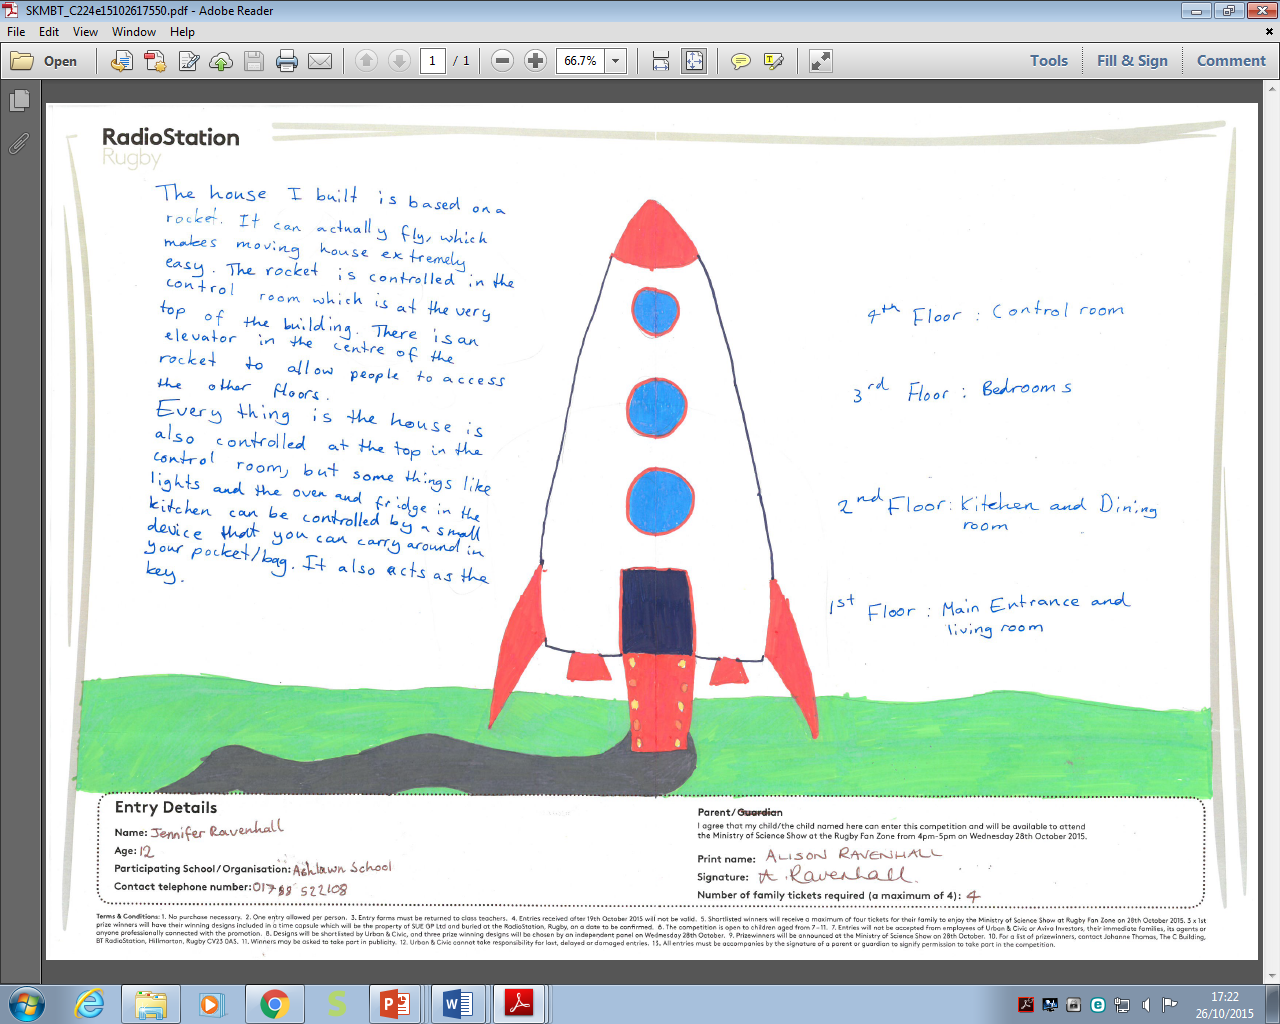 SKMBT_C224e15102617550.pdf - Adobe Reader
File Edit View Window Help
Open 1 / 1 66.7% Tools Fill & Sign Comment
RadioStation
Rugby
The house I built is based on a
rocket. It can actually fly, which
makes moving house extremely
easy. The rocket is controlled in the
control room which is at the very
top of the building. There is an
elevator in the centre of the
rocket to allow people to access
the other floors.
Every thing is the house is
also controlled at the top in the
control room, but some things like
lights and the oven and fridge in the
kitchen can be controlled by a small
device that you can carry around in
your pocket/bag. It also acts as the
key.
4th Floor : Control room
3rd Floor : Bedrooms
2nd Floor : Kitchen and Dining
room
1st Floor : Main Entrance and
living room
Entry Details
Name: Jennifer Ravenhall
Age: 12
Participating School/Organisation: Ashlawn School
Contact telephone number: 01788 522108
Parent/Guardian
I agree that my child/the child named here can enter this competition and will be available to attend
the Ministry of Science Show at the Rugby Fan Zone from 4pm-5pm on Wednesday 28th October 2015.
Print name: ALISON RAVENHALL
Signature: A. Ravenhall.
Number of family tickets required (a maximum of 4): 4
Terms & Conditions: 1. No purchase necessary. 2. One entry allowed per person. 3. Entry forms must be returned to class teachers. 4. Entries received after 19th October 2015 will not be valid. 5. Shortlisted winners will receive a maximum of four tickets for their family to enjoy the Ministry of Science Show at Rugby Fan Zone on 28th October 2015. 3 x 1st
prize winners will have their winning designs included in a time capsule which will be the property of SUE GP Ltd and buried at the RadioStation, Rugby, on a date to be confirmed. 6. The competition is open to children aged from 7-11. 7. Entries will not be accepted from employees of Urban & Civic or Aviva Investors, their immediate families, its agents or
anyone professionally connected with the promotion. 8. Designs will be shortlisted by Urban & Civic, and three prize winning designs will be chosen by an independent panel on Wednesday 28th October. 9. Prizewinners will be announced at the Ministry of Science Show on 28th October. 10. For a list of prizewinners, contact Johanne Thomas, The C Building,
BT RadioStation, Hillmorton, Rugby CV23 0AS. 11. Winners may be asked to take part in publicity. 12. Urban & Civic cannot take responsibility for lost, delayed or damaged entries. 13. All entries must be accompanies by the signature of a parent or guardian to signify permission to take part in the competition.
17:22
26/10/2015